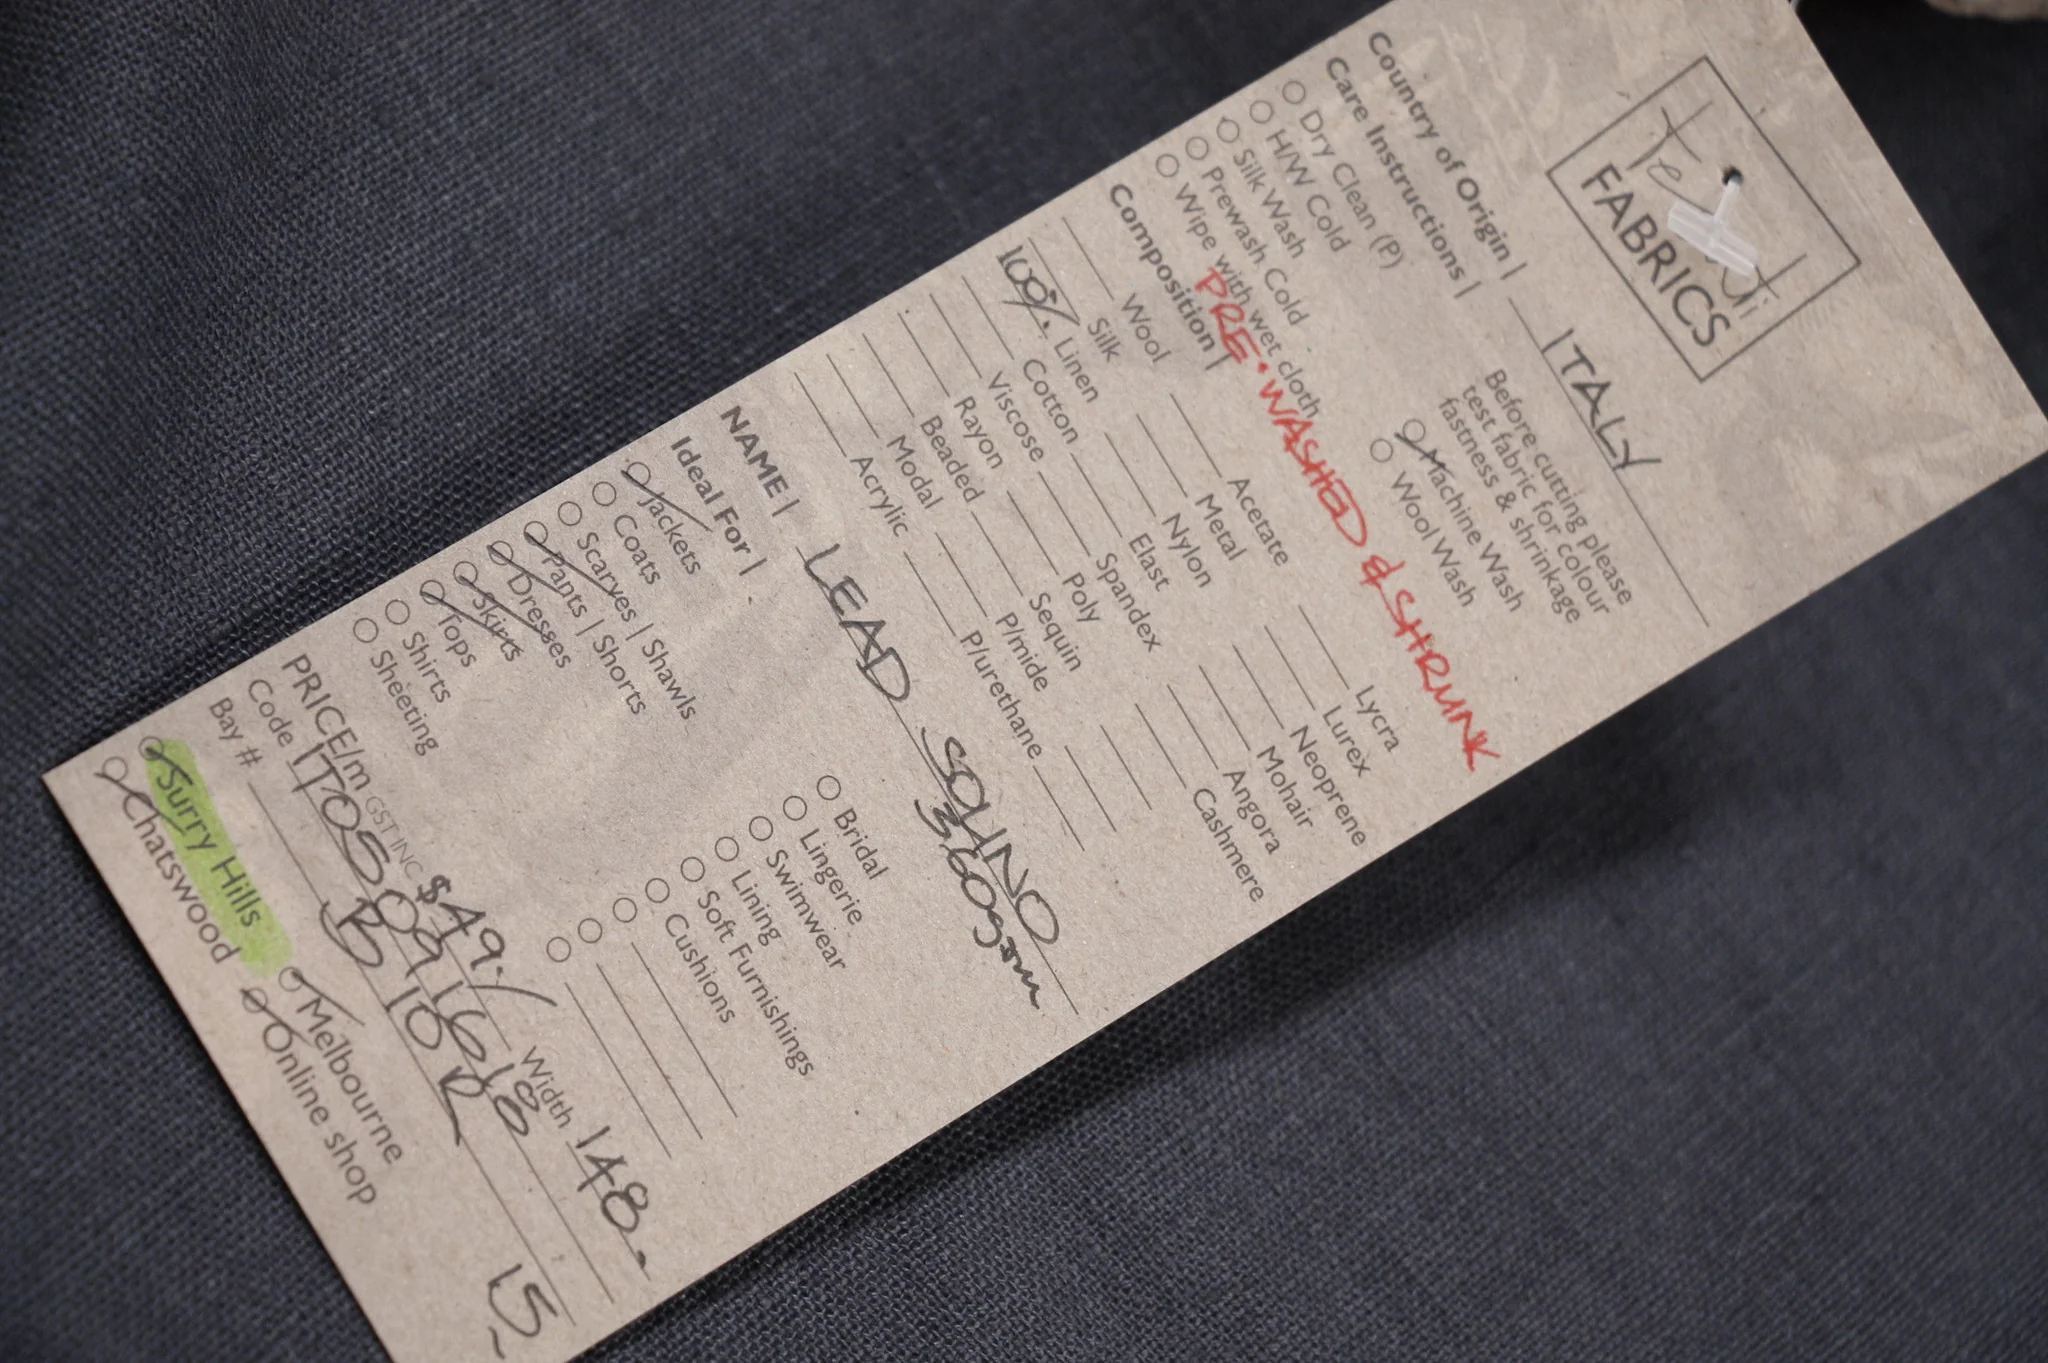 Tessuti
FABRICS
Country of Origin | ITALY
Care Instructions |
Before cutting please
test fabric for colour
fastness & shrinkage
Dry Clean (P)
H/W Cold
Silk Wash
Prewash Cold
Wipe with wet cloth
Machine Wash
Wool Wash
PRE-WASHED & SHRUNK
Composition |
Wool
Acetate
Lycra
Silk
Metal
Lurex
100% Linen
Nylon
Neoprene
Cotton
Elast
Mohair
Viscose
Spandex
Angora
Rayon
Poly
Cashmere
Beaded
Sequin
Modal
P/mide
Acrylic
P/urethane
NAME | LEAD SOLINO
360gsm
Ideal For |
Jackets
Coats
Scarves | Shawls
Pants | Shorts
Dresses
Skirts
Tops
Shirts
Sheeting
Bridal
Lingerie
Swimwear
Lining
Soft Furnishings
Cushions
PRICE/m GST INC $49.
Width 148.
Code ITOS091618
Bay # B10R
15
Surry Hills
Melbourne
Chatswood
Online shop